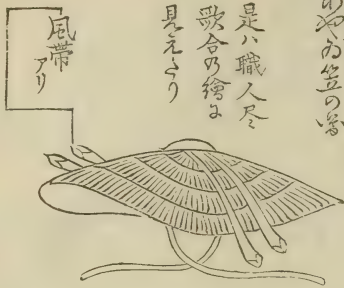 あやゐ笠の啚
是ハ職人尽
歌合の繪に
見えたり
風帯
アリ